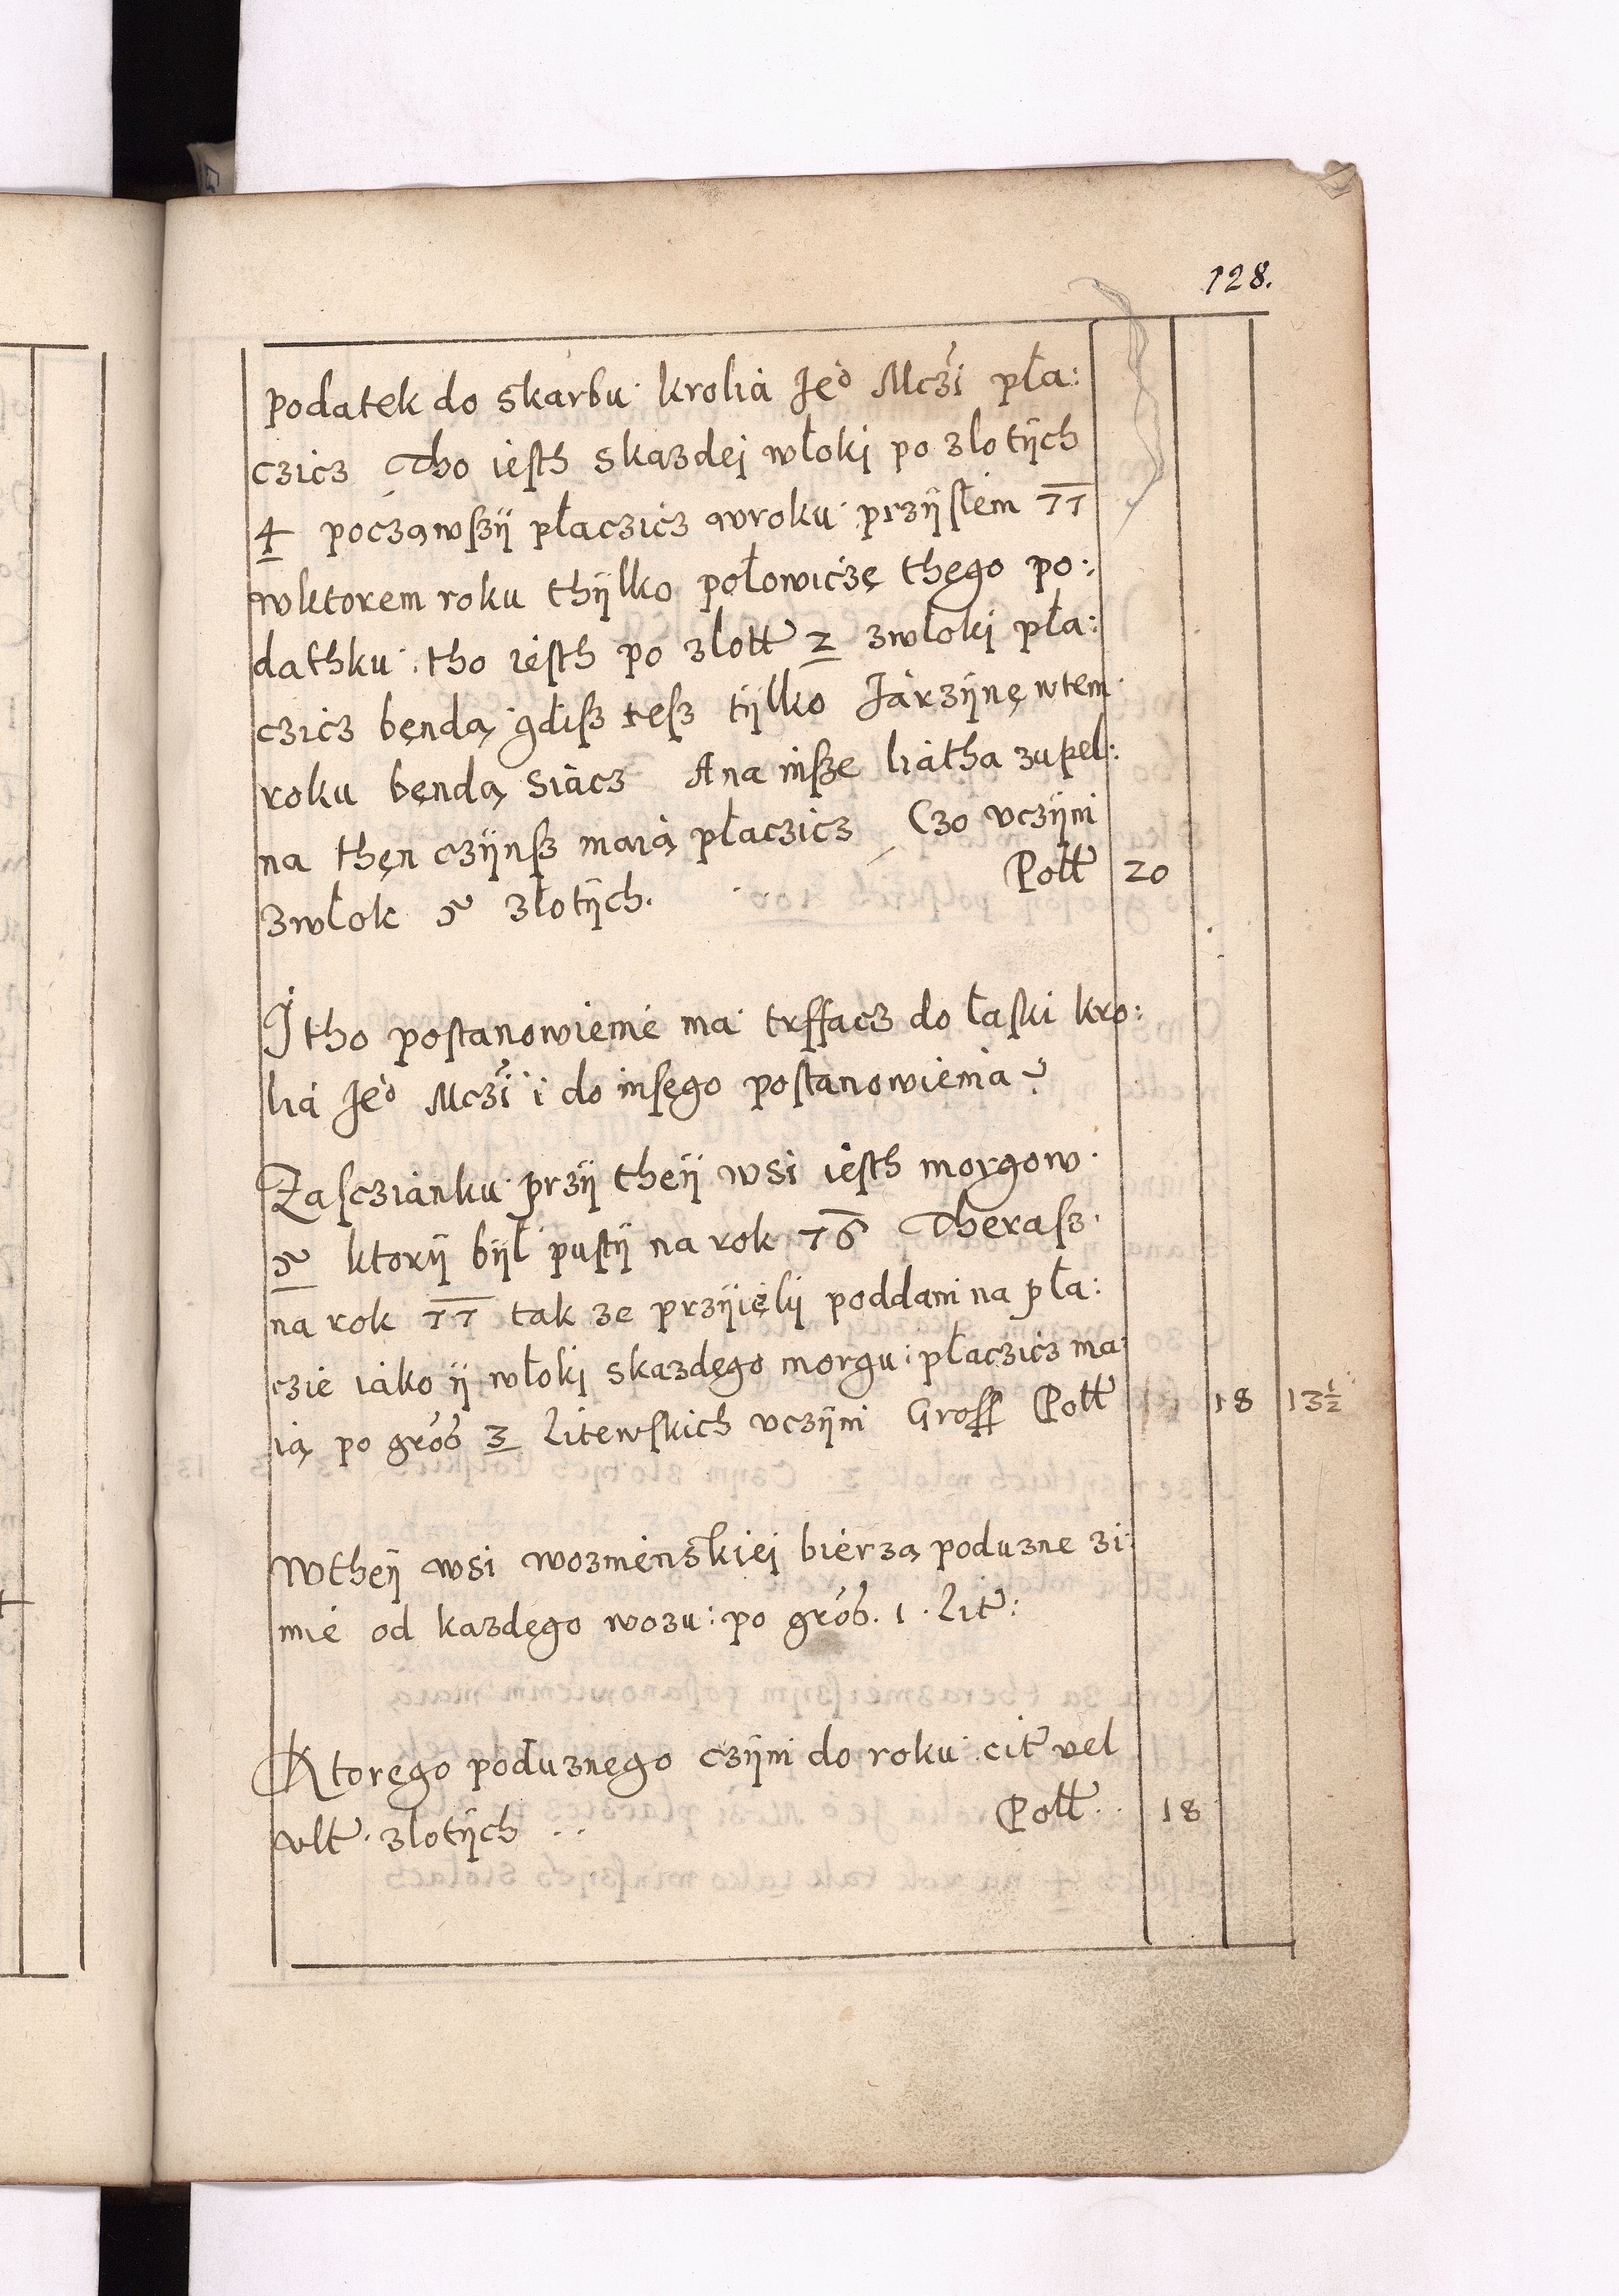 128.
podatek do skarbu krolia Jeo Mczi pła:
czicz Tho iesth skazdei włoki po zlotÿch
4 począwszÿ płaczicz wroku przÿslem 77
wktorem roku thÿlko połowiczę thego po:
dathku tho iesth po zlott 2 zwłoki pła:
czicz będą gdisz tesz tÿlko Jarzÿnę wtem
roku będą siacz A na insze liatha zupel:
na then czÿnsz maią płaczicz Czo vczÿni
zwłok 5 złotÿch. Poll 20
J tho postanowienie ma trffacz do łaski kro:
lia Jeo Mczi i do insego postanowienia
Zasczianku przÿ theÿ wsi iesth morgow
5 ktorÿ bÿł pustÿ na rok 76 Therasz
na rok 77 tak ze przÿięlÿ poddani na pła:
czie iako ÿ włoki skazdego morgu płaczicz ma
ią po grosz 3 Litewskich vczÿni Gross Poll 18 13½
W theÿ wsi wozmienskiei bierzą poduzne zi:
mie od kazdego wozu: po grosz. 1. Lit:
Ktorego poduznego czÿni do roku cit vel
vlt. zlotÿch .. Poll.. 18